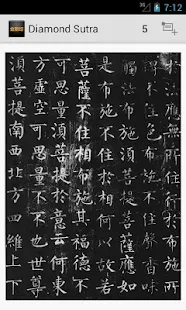 7:12
Diamond Sutra 5
於法應無所住行於布施所
謂不住色布施不住聲香味
觸法布施須菩提菩薩應如
是布施不住於相何以故若
菩薩不住相布施其福德不
可思量須菩提於意云何東
方虛空可思量不不也世尊
須菩提南西北方四維上下